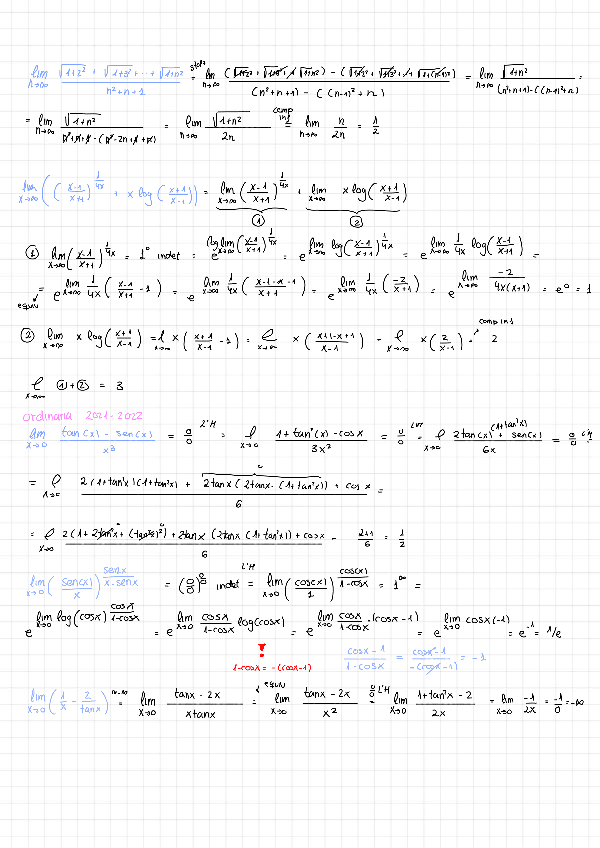 lim n→∞ √1+2² + √1+3² + ... + √1+n² / n²+n+1 = stolz lim n→∞ (√1+2² + √1+3² + √1+n²) - (√1+2² + √1+3² + √1+(n-1)²) / (n²+n+1) - ((n-1)²+n) = lim n→∞ √1+n² / (n²+n+1)-((n-1)²+n) =
= lim n→∞ √1+n² / n²+n+1-(n²-2n+1+n) = lim n→∞ √1+n² / 2n = comp inf lim n→∞ n/2n = 1/2
lim x→∞ ((x-1/x+1)^1/4x + x log(x+1/x-1)) = lim x→∞ (x-1/x+1)^1/4x + lim x→∞ x log(x+1/x-1)
① ②
① lim x→∞ (x-1/x+1)^1/4x = 1⁰ indet = e^log lim x→∞ (x-1/x+1)^1/4x = e^lim x→∞ log(x-1/x+1)^1/4x = e^lim x→∞ 1/4x log(x-1/x+1) =
= e^lim x→∞ 1/4x (x-1/x+1 - 1) = e^lim x→∞ 1/4x (x-1-x-1/x+1) = e^lim x→∞ 1/4x (-2/x+1) = e^lim x→∞ -2/4x(x+1) = e⁰ = 1
equiv
② lim x→∞ x log(x+1/x-1) = l x→∞ x (x+1/x-1 - 1) = l x→∞ x (x+1-x+1/x-1) = l x→∞ x (2/x-1) = comp inf 2
l x→∞ ①+② = 3
ordinaria 2021-2022
lim x→0 tan(x) - sen(x) / x³ = 0/0 L'H = l x→0 1+tan²(x) - cosx / 3x² = 0/0 L'H = l x→0 2tan(x)(1+tan²x) + sen(x) / 6x = 0/0 L'H
= l x→0 2(1+tan²x)(1+tan²x) + 2tanx(2tanx·(1+tan²x)) + cos x / 6 =
= l x→0 2(1+2tan²x+(tan²x)²) + 2tanx(2tanx(1+tan²x)) + cosx / 6 = 2+1/6 = 1/2
lim x→0 (sen(x)/x)^senx/x-senx = (0/0)^0/0 indet L'H = lim x→0 (cos(x)/1)^cos(x)/1-cosx = 1^∞ =
e^lim x→0 log(cosx)^cosx/1-cosx = e^lim x→0 cosx/1-cosx log(cosx) = e^lim x→0 cosx/1-cosx ·(cosx-1) = e^lim x→0 cosx(-1) = e⁻¹ = 1/e
! cosx-1/1-cosx = cosx-1/-(cosx-1) = -1
1-cosx = -(cosx-1)
lim x→0 (1/x - 2/tanx) ∞-∞ = lim x→0 tanx-2x / xtanx = equiv lim x→0 tanx-2x / x² = 0/0 L'H lim x→0 1+tan²x-2 / 2x = lim x→0 -1/2x = -1/0 = -∞